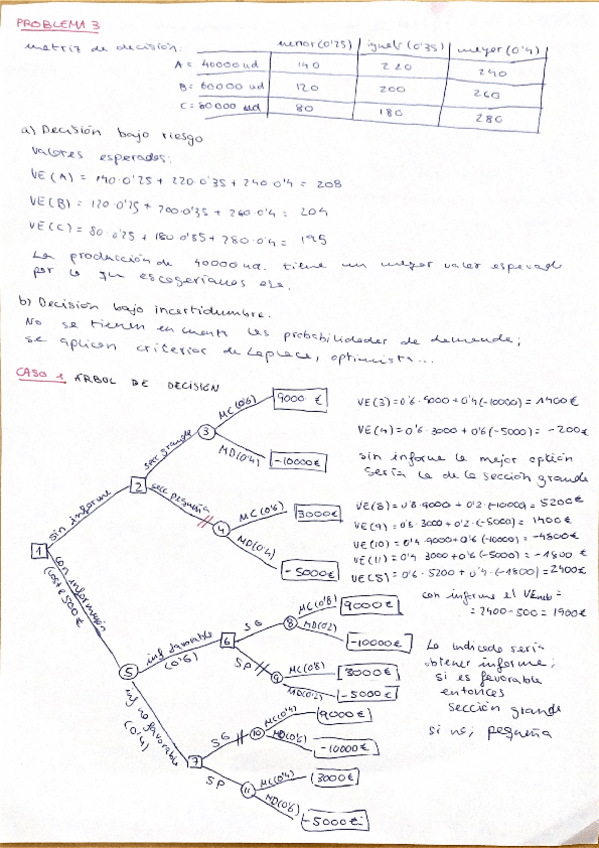 PROBLEMA 3
matriz de decisión:
menor (0'25) igual (0'35) mayor (0'4)
A = 40000 ud 140 220 240
B = 60000 ud 120 200 260
C = 80000 ud 80 180 280
a) Decisión bajo riesgo
Valores esperados:
VE(A) = 140·0'25 + 220·0'35 + 240·0'4 = 208
VE(B) = 120·0'25 + 200·0'35 + 260·0'4 = 204
VE(C) = 80·0'25 + 180·0'35 + 280·0'4 = 195
La producción de 40000 ud. tiene un mejor valor esperado
por lo que escogeríamos esa.
b) Decisión bajo incertidumbre.
No se tienen en cuenta las probabilidades de demanda;
se aplican criterios de Laplace, optimista...
CASO 1 ÁRBOL DE DECISIÓN
1
sin informe
con información
(coste 500€
2
secc grande
secc pequeña
3
MC(0'6)
9000 €
MD(0'4)
-10000€
4
MC(0'6)
3000€
MD(0'4)
-5000€
5
inf favorable
(0'6)
inf no favorable
(0'4)
6
SG
SP
8
MC(0'8)
9000€
MD(0'2)
-10000€
9
MC(0'8)
3000€
MD(0'2)
-5000€
7
SG
SP
10
MC(0'4)
9000€
MD(0'6)
-10000€
11
MC(0'4)
3000€
MD(0'6)
-5000€
VE(3) = 0'6·9000 + 0'4(-10000) = 1400€
VE(4) = 0'6·3000 + 0'6(-5000) = -200€
sin informe la mejor opción
sería la de la sección grande
VE(8) = 0'8·9000 + 0'2·(-10000) = 5200€
VE(9) = 0'8·3000 + 0'2·(-5000) = 1400€
VE(10) = 0'4·9000 + 0'6(-10000) = -4800€
VE(11) = 0'4·3000 + 0'6(-5000) = -1800 €
VE(5) = 0'6·5200 + 0'4·(-1800) = 2400€
con informe el VEneto =
= 2400-500 = 1900€
Lo indicado sería
obtener informe;
si es favorable
entonces
sección grande
si no; pequeña